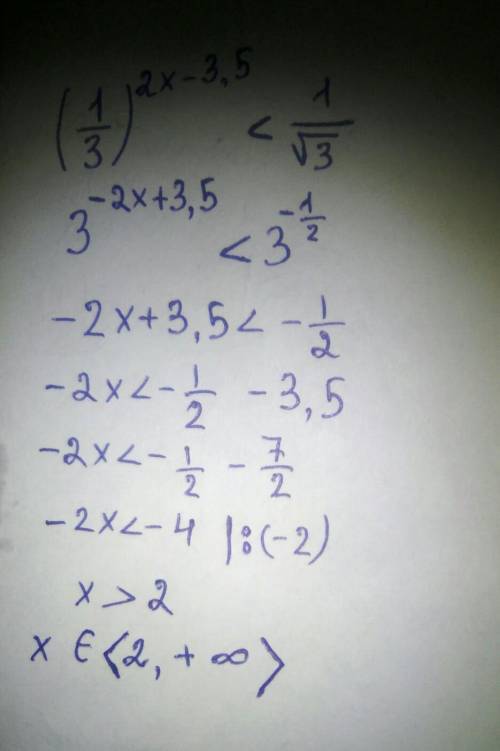 (1/3)^(2x-3,5) < 1/√3
3^(-2x+3,5) < 3^(-1/2)
-2x+3,5 < -1/2
-2x < -1/2 -3,5
-2x < -1/2 - 7/2
-2x < -4 |:(-2)
x > 2
x ∈ ⟨2, +∞⟩